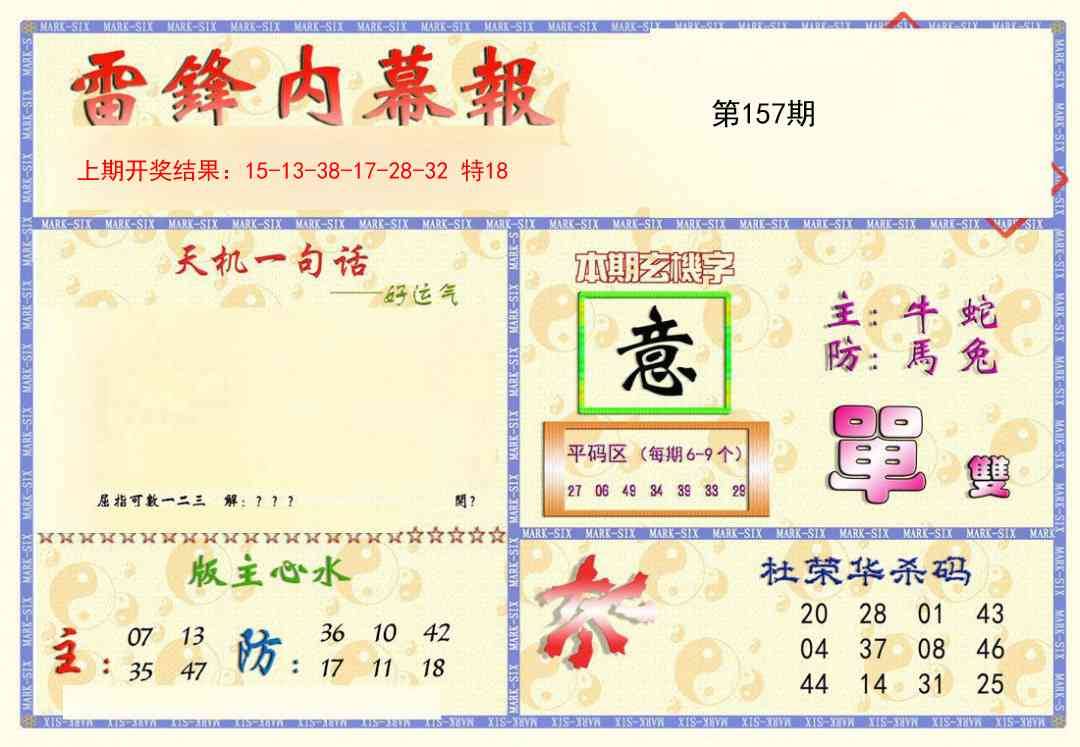 雷鋒内幕報
第157期
上期开奖结果：15-13-38-17-28-32 特18
天机一句话
——好运气
屈指可數一二三 解：？？？ 開？
本期玄機字
意
主：牛 蛇
防：馬 兔
平码区（每期6-9个）
27 06 49 34 39 33 29
單 雙
版主心水
主：07 13 35 47
防：36 10 42 17 11 18
杜荣华杀码
20 28 01 43
04 37 08 46
44 14 31 25
MARK-SIX